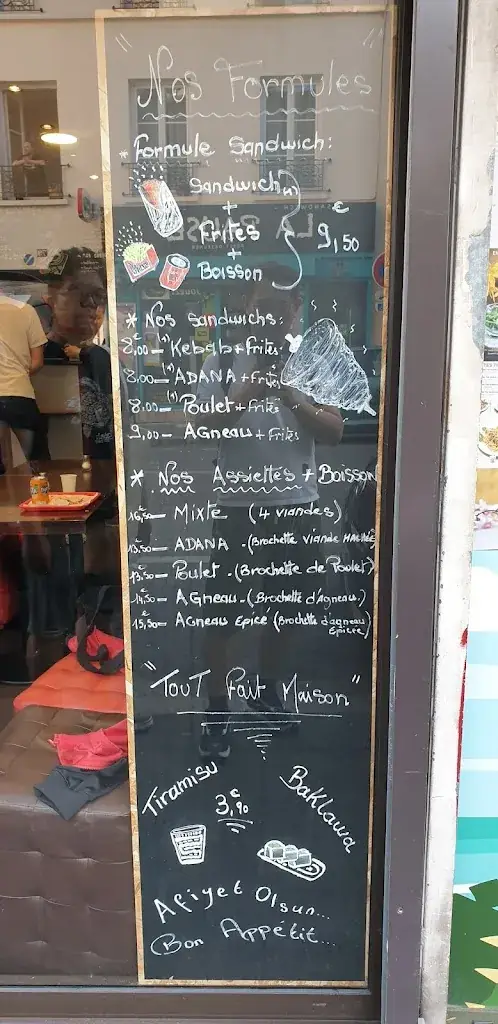 " Nos Formules "
* Formule Sandwich:
Sandwich
+
Frites
+
Boisson
9,50 €
* Nos Sandwichs:
8,00 – Kebab + Frites
8,00 – ADANA + Frites
8,00 – Poulet + Frites
9,00 – Agneau + Frites
* Nos Assiettes + Boisson
16,50 – Mixte (4 viandes)
13,50 – ADANA - (Brochette viande Hachée)
13,50 – Poulet - (Brochette de Poulet)
14,50 – Agneau - (Brochette d'Agneau)
15,50 – Agneau Epicé (Brochette d'agneau
Epicée)
" Tout Fait Maison "
Tiramisu
3,90
Baklawa
Afiyet Olsun...
Bon Appétit...